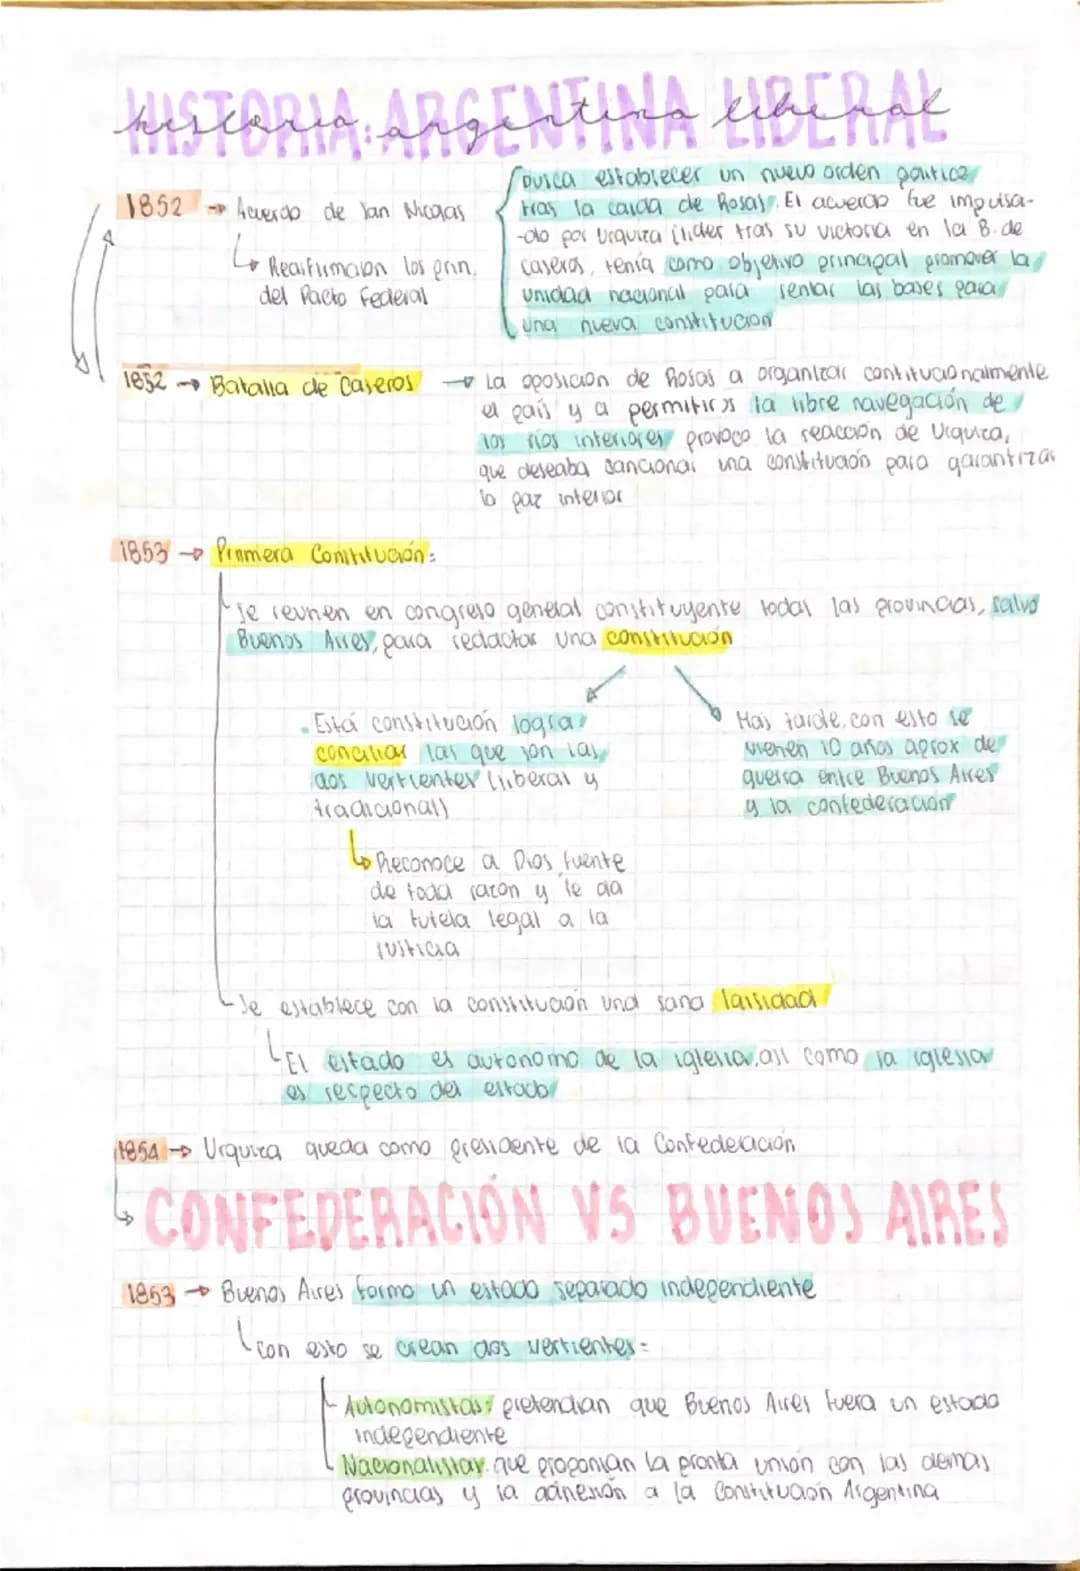 HISTORIA: ARGENTINA LIBERAL
historia argentina liberal
1852 → Acuerdo de San Nicolas
↳ Reafirmacion los prin.
del Pacto Federal
busca establecer un nuevo orden politico
tras la caida de Rosas. El acuerdo fue impulsa-
-do por Urquiza (lider tras su victoria en la B. de
caseros, tenía como objetivo principal promover la
unidad nacional para sentar las bases para
una nueva constitucion
1852 → Batalla de Caseros → La oposicion de Rosas a organizar contitucionalmente
el pais y a permitir la libre navegación de
los rios interiores provoco la reacción de Urquiza,
que deseaba sancionar una constitución para garantizar
la paz interior
1853 → Primera Constitución:
Se reunen en congreso general constituyente todas las provincias, salvo
Buenos Aires, para redactar una constitución
. Está constitución logra
conciliar las que son las
dos vertientes (liberal y
tradicional)
↳ Reconoce a Dios fuente
de toda razon y le da
la tutela legal a la
justicia
Mas tarde, con esto se
vienen 10 años aprox de
guerra entre Buenos Aires
y la confederación
Se establece con la constitución una sana laisidad
El estado es autonomo de la iglesia, asi como la iglesia
es respecto del estado
1854 → Urquiza queda como presidente de la Confederación
↳ CONFEDERACIÓN VS BUENOS AIRES
1853 → Buenos Aires formo un estado separado independiente
con esto se crean dos vertientes:
Autonomistas: pretendian que Buenos Aires fuera un estado
independiente
Nacionalistas: que proponian la pronta unión con las demas
provincias y la adhesión a la Constitución Argentina